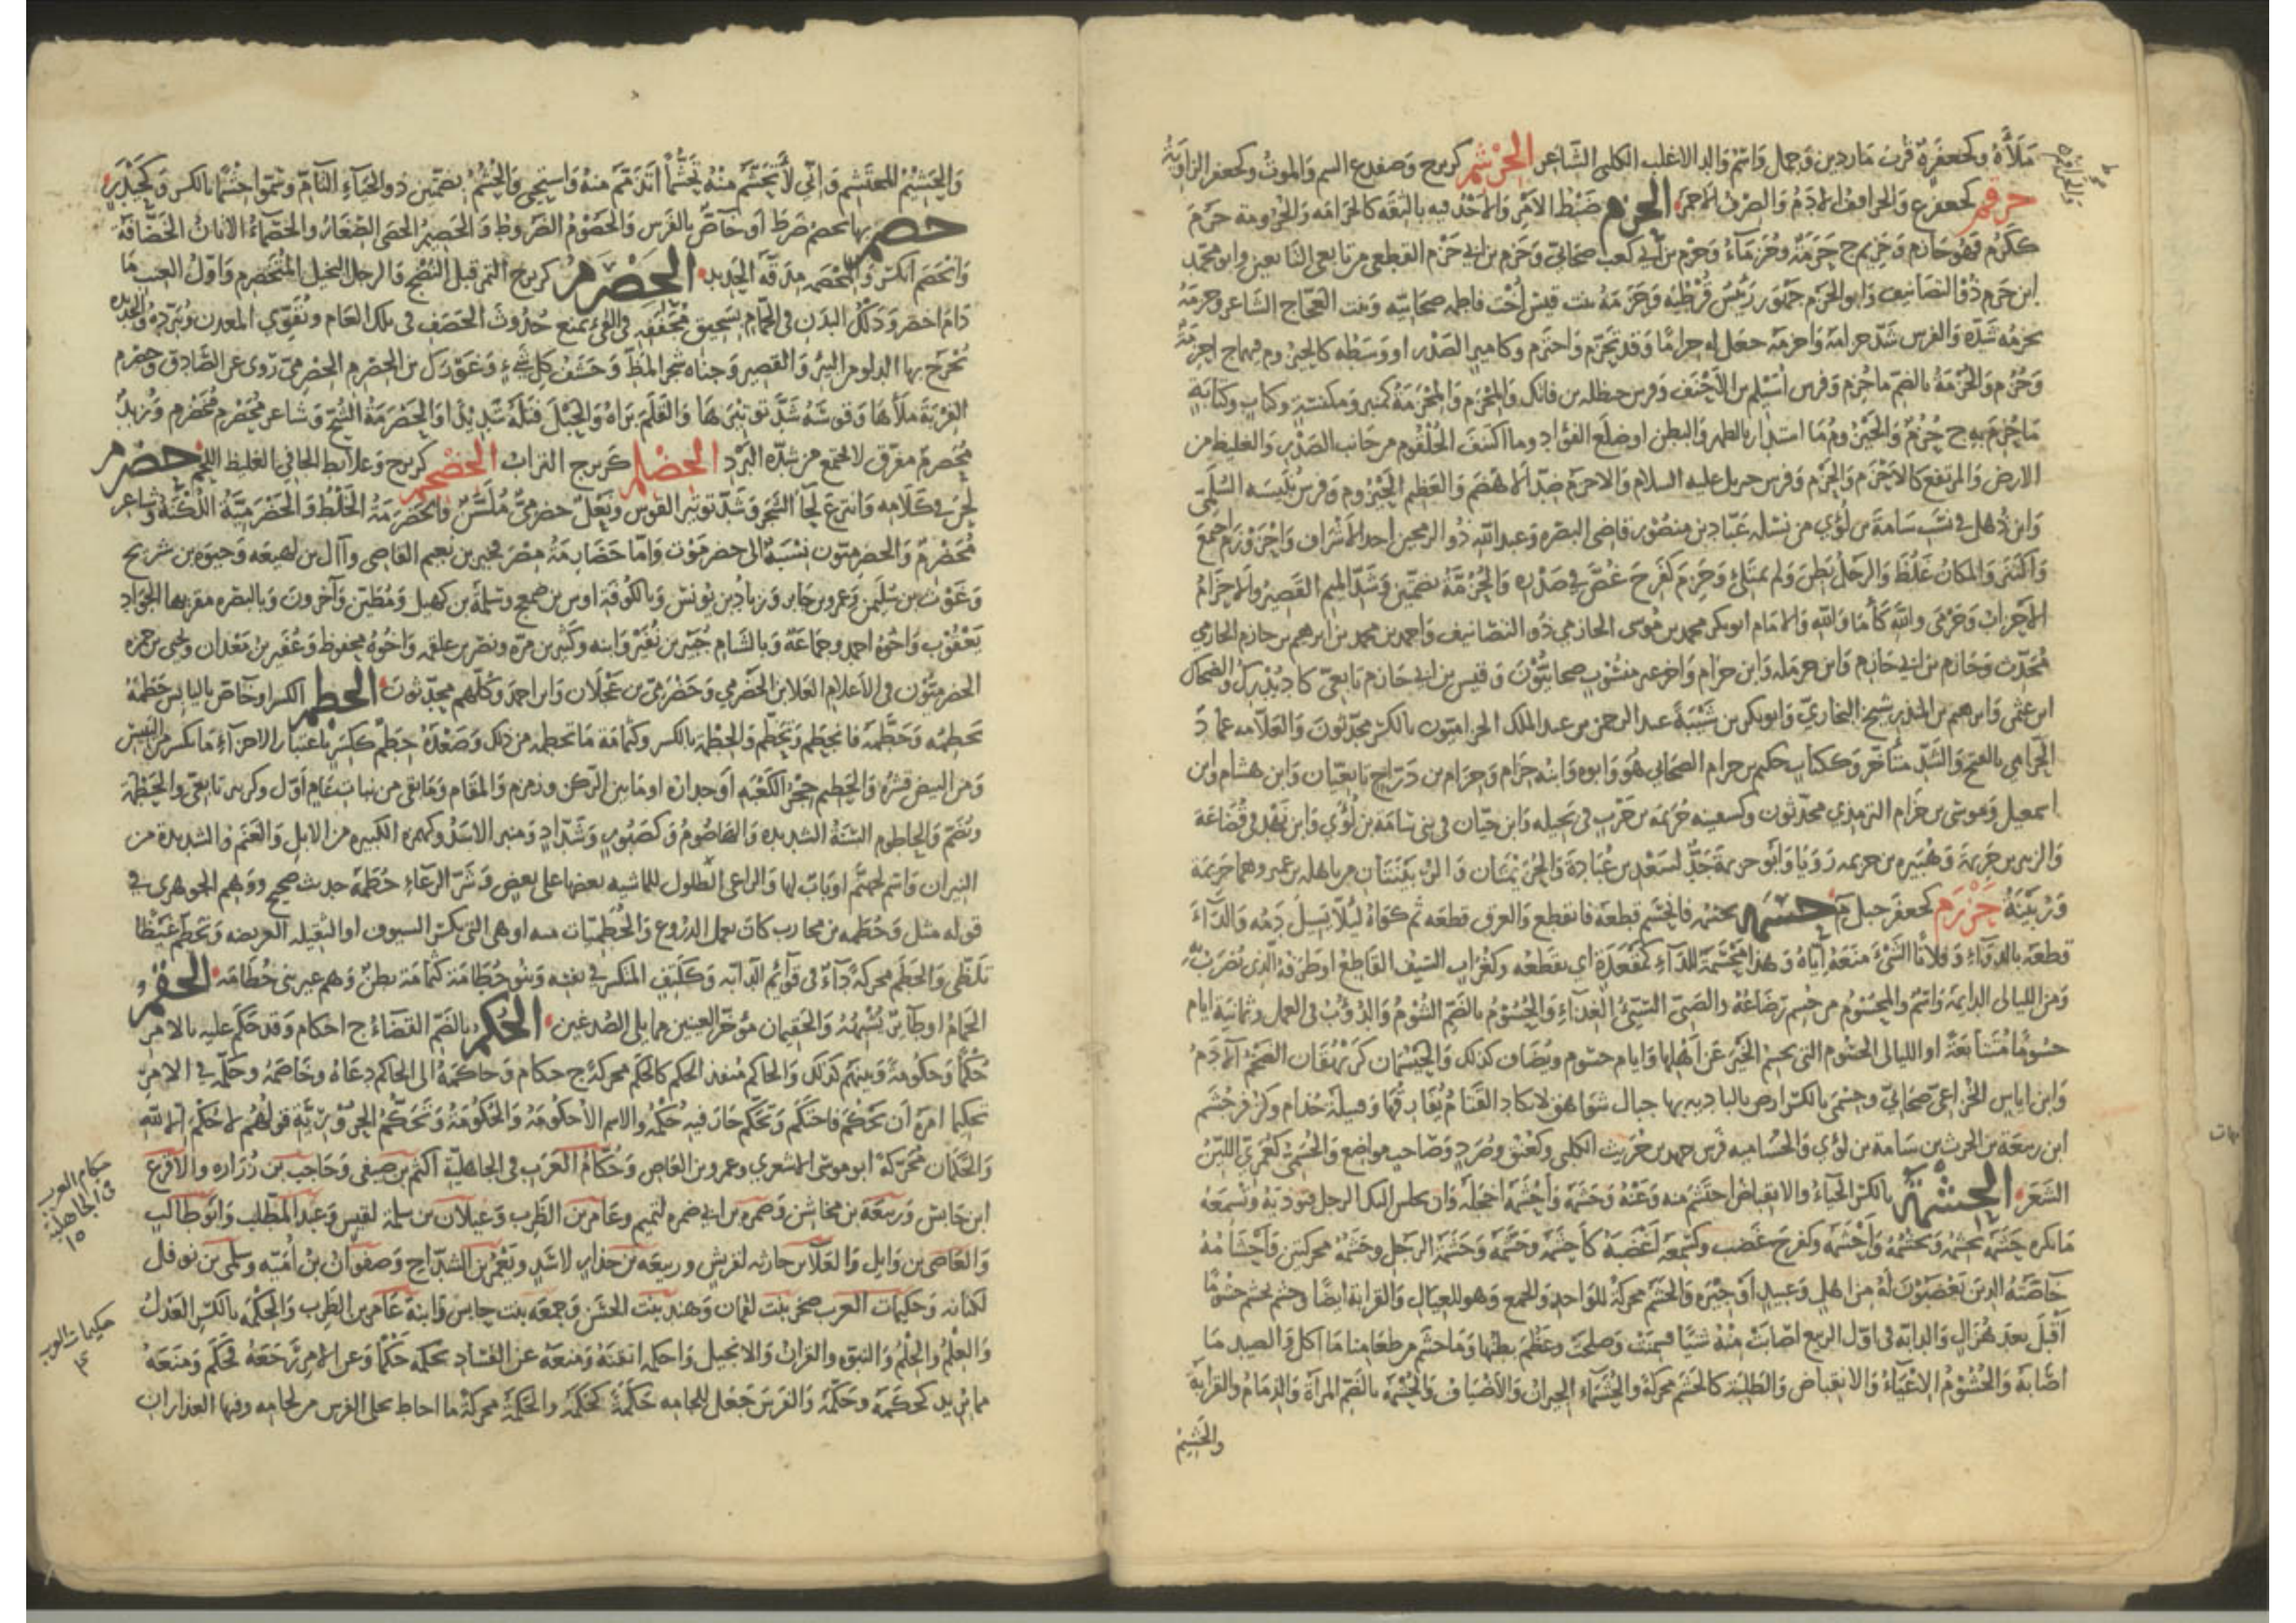 مَلَأَهُ وكجعفرة قرب ماردين وجمل واسم والد الاغلب الكلبي الشاعر الحرشم كزبرج وضفدع السم والموت وكجعفر الزاوية
حرقم كجعفر ع والحراقف الادم والصرف الاحمر الحزم ضبط الامر والاخذ فيه بالثقة كالحزامة والحزومة حزم
ككرم فهو حازم وحزيم ج حزمة وحزماء وحزم بن ابي كعب صحابي وحزم بن ابي حزم القطعي من تابعي التابعين وابو محمد
ابن حزم ذو التصانيف وابو الحزم جهور رئيس قرطبة وحزمة بنت قيس اخت فاطمة صحابية وبنت العجاج الشاعر وحزمه
يحزمه شده والفرس شد حزامه واحزمه جعل له حزاما وقد تحزم واحتزم وكامير الصدر او وسطه كالحيزوم فيهما ج احزمة
وحزم والحزمة بالضم ما حزم وفرس اسيلم بن الاحنف وفرس حنظلة بن فاتك والمحزم والمحزمة كمنبر ومكنسة وكتاب وكتابة
ما حزم به ج حزم والحيزوم ما استدار بالظهر والبطن او ضلع الفؤاد وما اكتنف الحلقوم من جانب الصدر والغليظ من
الارض والمرتفع كالاحزم والحزم وفرس جبريل عليه السلام والاحزم ضد الاهضم والعظيم الحيزوم وفرس نبيشة السلمي
وابن ذهل في نسب سامة بن لؤي من نسله عباد بن منصور قاضي البصرة وعبد الله ذو الرمحين احد الاشراف واحزوزم اجتمع
واكتنز والمكان غلظ والرجل بطن ولم يمتلئ وحزم كفرح غص في صدره والحزمة بضمتين وشد الميم القصير والاحزام
الاحزاب وحزمى والله كاما والله والامام ابو بكر محمد بن موسى الحازمي ذو التصانيف واحمد بن محمد بن ابرهيم بن حازم الحازمي
محدث وحازم بن ابي حازم وابن حرملة وابن حزام واخر غير منسوب صحابيون وقيس بن ابي حازم تابعي كاد يدرك والضحاك
ابن عثمن وابرهيم بن المنذر شيخ البخاري وابو بكر بن شيبة عبد الرحمن بن عبد الملك الحزاميون بالكسر محدثون والعلامة عماد
الحزامي بالفتح والشد متاخر وككتاب حكيم بن حزام الصحابي هو وابوه وابنه حزام وحزام بن دراج تابعيان وابن هشام وابن
اسمعيل وموسى بن حزام الترمذي محدثون وكسفينة حزيمة بن حرب في بجيلة وابن حيان في بني سامة بن لؤي وابن نهد في قضاعة
والزبير بن حزيمة وهبيرة بن حزيمة رويا وابو حزيمة جد لسعد بن عبادة والحزيمتان والزبينتان من باهلة بن عمرو وهما حزيمة
وزبينة حزرم كجعفر جبل حسمه يحسمه فانحسم قطعه فانقطع والعرق قطعه ثم كواه لئلا يسيل دمه والداء
قطعه بالدواء وفلانا الشيء منعه اياه وهذا محسمة للداء كمقعدة اي يقطعه وكغراب السيف القاطع او طرفه الذي يضرب به
ومن الليالي الدائمة واسم والمحسوم من حسم رضاعه والصبي السيئ الغذاء والحسوم بالضم الشؤم والدؤب في العمل وثمانية ايام
حسوما متتابعة او الليالي الحسوم التي تحسم الخير عن اهلها وايام حسوم ويضاف كذلك والحيسمان كريهقان الضخم الادم
وابن اياس الخزاعي صحابي وحسمى بالكسر ارض بالبادية بها جبال شواهق لا يكاد القتام يفارقها وقبيلة جذام وكزفر حسم
ابن ربيعة بن الحرث بن سامة بن لؤي والحسامية فرس حميد بن حريث الكلبي وكعنق وصرد وصاحب مواضع والحسمي كعمري اللبن
الشعر الحشمة بالكسر الحياء والانقباض احتشم منه وعنه وحشمه واحشمه اخجله وان يجلس اليك الرجل فتوذيه وتسمعه
ما يكره حشمه يحشمه ويحشمه واحشمه وكفرح غضب وكسمعه اغضبه كاحشمه وحشمه وحشمة الرجل وحشمه محركتين واحشامه
خاصته الذين يغضبون له من اهل وعبيد او جيرة والحشم محركة للواحد والجمع وهو للعيال والقرابة ايضا وحشم يحشم حشوما
اقبل بعد هزال والدابة في اول الربيع اصابت منه شيا فسمنت وصلحت وعظم بطنها وما حشم من طعامنا ما اكل والصيد ما
اصابه والحشوم الاعياء والانقباض والطلبة كالحشم محركة والحشماء الجيران والاضياف والحشمة بالضم المراة والذمام والقرابة
والحشيم
والحشيم المحتشم واني لاتحشم منه تحشما اتذمم منه واستحي والحشم بضمتين ذوو الحياء التام وسموا حشما بالكسر وكحيدر
حصم بها يحصم ضرط او خاص بالفرس والحصوم الضروط والحصيم الحصى الصغار والحصماء الاتان الخضافة
وانحصم انكسر والمحصمة مدقة الحديد الحصرم كزبرج الثمر قبل النضج والرجل البخيل المتحصرم واول العنب ما
دام اخضر ودلك البدن في الحمام بسحيق مجففه في الفيء يمنع حدوث الحصف في تلك العام ويقوي البدن ويبرده والحديدة
تخرج بها الدلو من البئر والقصير وجناه شجر المظ وحشف كل شيء وعوذك بن الحصرم الحضرمي روى عن الصادق وحصرم
القربة ملاها وقوسه شد توتيرها والقلم براه والحبل فتله شديدا والحصرمة الشح وشاعر محصرم محضرم وزبد
محصرم متفرق لا يجتمع من شدة البرد الحضلم كزبرج التراب الحضجم كزبرج وعلابط الجافي الغليظ اللحم حضرم
لحن في كلامه وانتزع لحاء الشجر وشد توتير القوس ونعل حضرمي ملسن والحضرمة الخلط والحضرمية اللكنة وشاعر
محضرم والحضرميون نسبة الى حضرموت واما حضارمة مصر فخير بن نعيم القاضي وآل ابن لهيعة وحيوة بن شريح
وغوث بن سليمن وعمرو بن جابر وزياد بن يونس وبالكوفة اوس بن ضمعج وسلمة بن كهيل ومطين وآخرون وبالبصرة مقربها الجواد
يعقوب واخوه احمد وجماعة وبالشام جبير بن نفير وابنه وكثير بن مرة ونصر بن علقمة واخوه محفوظ وعفير بن معدان ويحيى بن حمزه
الحضرميون وفي الاعلام العلا بن الحضرمي وحضرمي بن عجلان وابن احمد وكلهم محدثون الحطم الكسر او خاص باليابس حطمه
يحطمه وحطمه فانحطم وتحطم والحطمة بالكسر وكثمامة ما تحطم من ذلك وصعدة حطم ككسر باعتبار الاجزاء ما تكسر من اليبيس
ومن البيض قشره والحطيم حجر الكعبة او جداره او ما بين الركن وزمزم والمقام وما بقي من نبات عام اول وكزبير تابعي والحطمة
ويضم والحاطوم السنة الشديدة والهاضوم وكصبور وشداد ومنبر الاسد وكهمزة الكبيرة من الابل والغنم والشديدة من
النيران واسم لجهنم او باب لها والراعي الظلوم للماشية يهشم بعضها على بعض وشر الرعاء حطمة حديث صحيح ووهم الجوهري في
قوله مثل وحطمة بن محارب كان يعمل الدروع والحطميات منه او هي التي تكسر السيوف او الثقيلة العريضة وتحطم غيظا
تلظى والحطم محركة داء في قوائم الدابة وككتف المتكسر في نفسه وبنو حطامة كثمامة بطن وهم غير بني خطامة الحقم
الحمام او طائر يشبهه والحقيمان مؤخر العينين مما يلي الصدغين الحكم بالضم القضاء ج احكام وقد حكم عليه بالامر
حكما وحكومة وبينهم كذلك والحاكم منفذ الحكم كالحكم محركة ج حكام وحاكمه الى الحاكم دعاه وخاصمه وحكمه في الامر
تحكيما امره ان يحكم فاحتكم وتحكم جاز فيه حكمه والاسم الاحكومة والحكومة وتحكم الحرورية قولهم لا حكم الا لله
والحكمان محركة ابو موسى الاشعري وعمرو بن العاص وحكام العرب في الجاهلية اكثم بن صيفي وحاجب بن زرارة والاقرع
ابن حابس وربيعة بن مخاشن وضمرة بن ابي ضمرة لتميم وعامر بن الظرب وغيلان بن سلمة لقيس وعبد المطلب وابو طالب
والعاصي بن وايل والعلا بن حارثة لقريش وربيعة بن حذار لاسد ويعمر بن الشداخ وصفوان بن امية وسلمى بن نوفل
لكنانة وحكيمات العرب صحر بنت لقمان وهند بنت الخس وجمعة بنت حابس وابنة عامر بن الظرب والحكمة بالكسر العدل
والعلم والحلم والنبوة والقرآن والانجيل واحكمه اتقنه ومنعه عن الفساد كحكمه حكما وعن الامر رجعه فحكم ومنعه
مما يريد كحكمه وحكمه والفرس جعل للجامه حكمة كحكمه والحكمة محركة ما احاط بحنكي الفرس من لجامه وفيها العذاران
حكام العرب
في الجاهلية
١٥
حكيمات العرب
٤